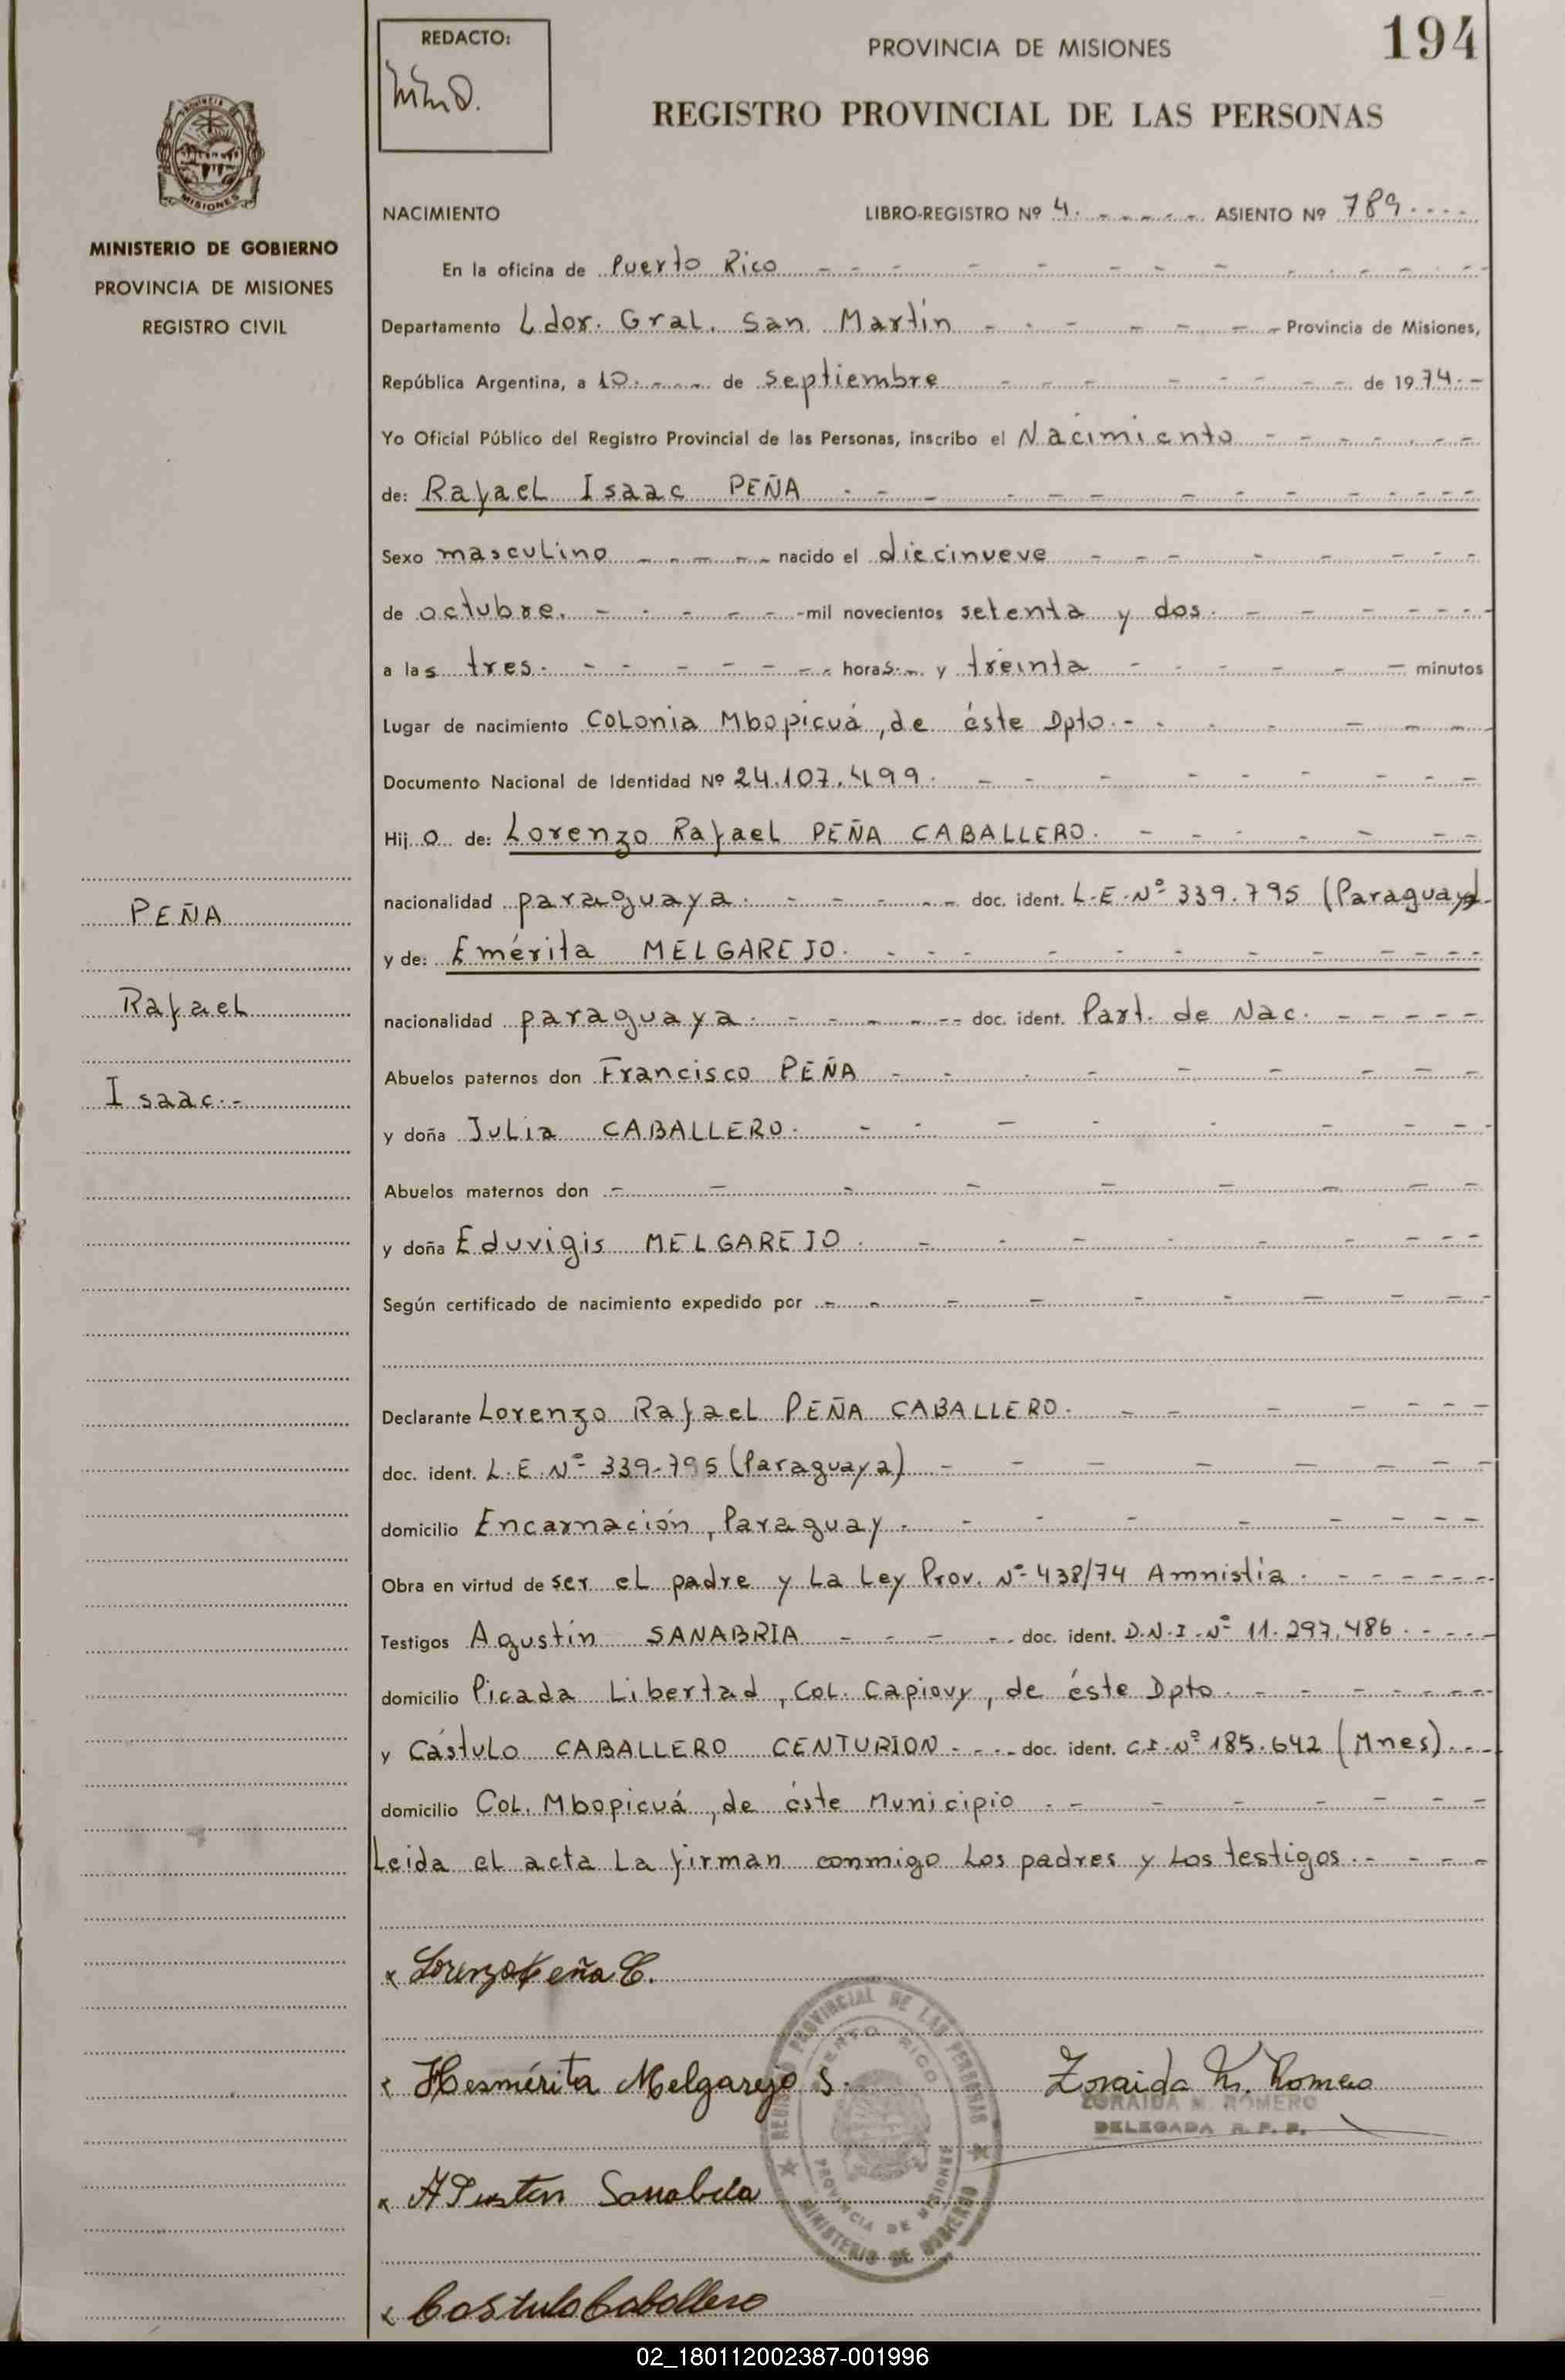 194
REDACTO:
PROVINCIA DE MISIONES
REGISTRO PROVINCIAL DE LAS PERSONAS
PROVINCIA
MISIONES
MINISTERIO DE GOBIERNO
PROVINCIA DE MISIONES
REGISTRO CIVIL
NACIMIENTO LIBRO-REGISTRO Nº 4. ASIENTO Nº 789
En la oficina de Puerto Rico
Departamento Ldor. Gral. San Martín Provincia de Misiones,
República Argentina, a 10 de septiembre de 1974.-
Yo Oficial Público del Registro Provincial de las Personas, inscribo el Nacimiento
de: Rafael Isaac PEÑA
Sexo masculino nacido el diecinueve
de octubre. mil novecientos setenta y dos.
a las tres. horas. y treinta minutos
Lugar de nacimiento Colonia Mbopicuá, de éste Dpto.
Documento Nacional de Identidad Nº 24.107.499.
Hijo de: Lorenzo Rafael PEÑA CABALLERO.
nacionalidad paraguaya. doc. ident. L.E.Nº 339.795 (Paraguay)
y de: Emérita MELGAREJO.
nacionalidad paraguaya. doc. ident. Part. de Nac.
Abuelos paternos don Francisco PEÑA
y doña Julia CABALLERO.
Abuelos maternos don
y doña Eduvigis MELGAREJO.
Según certificado de nacimiento expedido por
Declarante Lorenzo Rafael PEÑA CABALLERO.
doc. ident. L.E.Nº 339-795 (Paraguaya)
domicilio Encarnación, Paraguay.
Obra en virtud de ser el padre y la Ley Prov. Nº 438/74 Amnistía.
Testigos Agustín SANABRIA doc. ident. D.N.I.Nº 11.297.486.
domicilio Picada Libertad, Col. Capiovy, de éste Dpto.
y Cástulo CABALLERO CENTURION doc. ident. C.I.Nº 185.642 (Mnes).
domicilio Col. Mbopicuá, de éste Municipio.
Leida el acta la firman conmigo los padres y los testigos.
PEÑA
Rafael
Isaac.-
x Lorenzo Peña C.
x Hesmérita Melgarejo S.
Zoraida M. Romero
ZORAIDA M. ROMERO
DELEGADA R. P. P.
REGISTRO PROVINCIAL DE LAS PERSONAS
PUERTO RICO
PROVINCIA DE MISIONES
MINISTERIO DE GOBIERNO
x Castulo Caballero
02_180112002387-001996